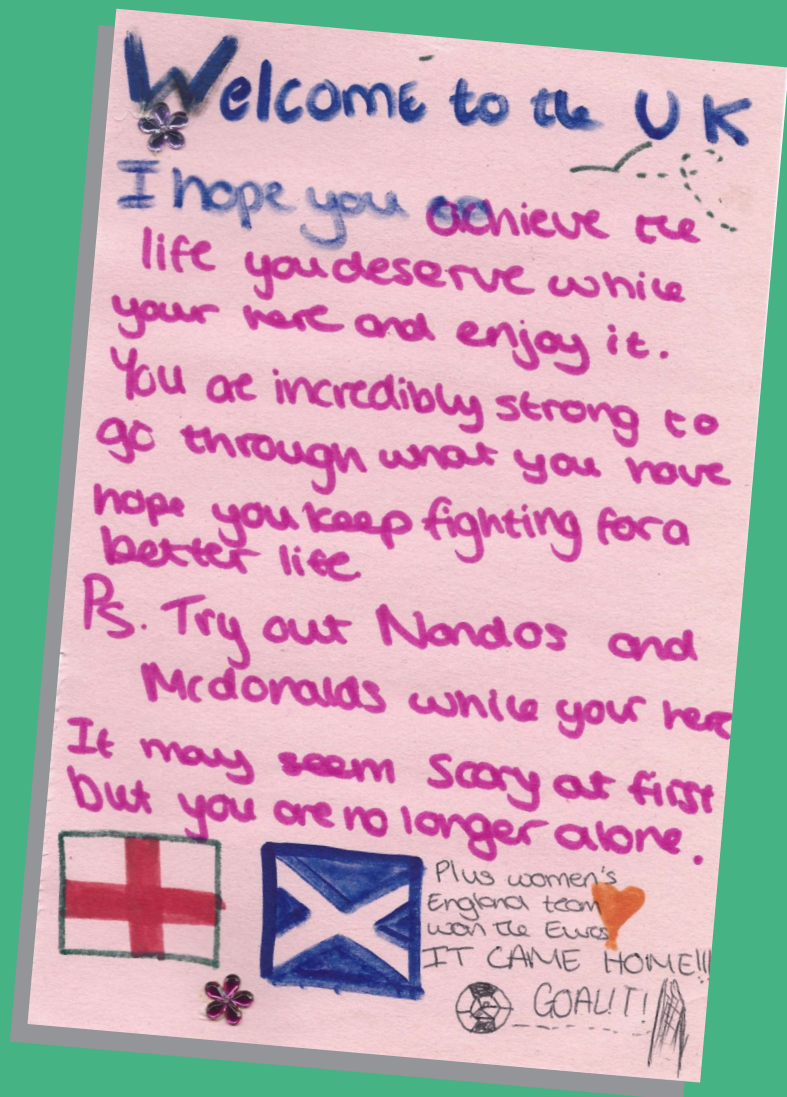 Welcome to the UK
I hope you achieve the
life you deserve while
your here and enjoy it.
You are incredibly strong to
go through what you have
hope you keep fighting for a
better life
Ps. Try out Nandos and
Mcdonalds while your here
It may seem scary at first
but you are no longer alone.
Plus women's
England team
won the Euros
IT CAME HOME!!!
GOAL!T!